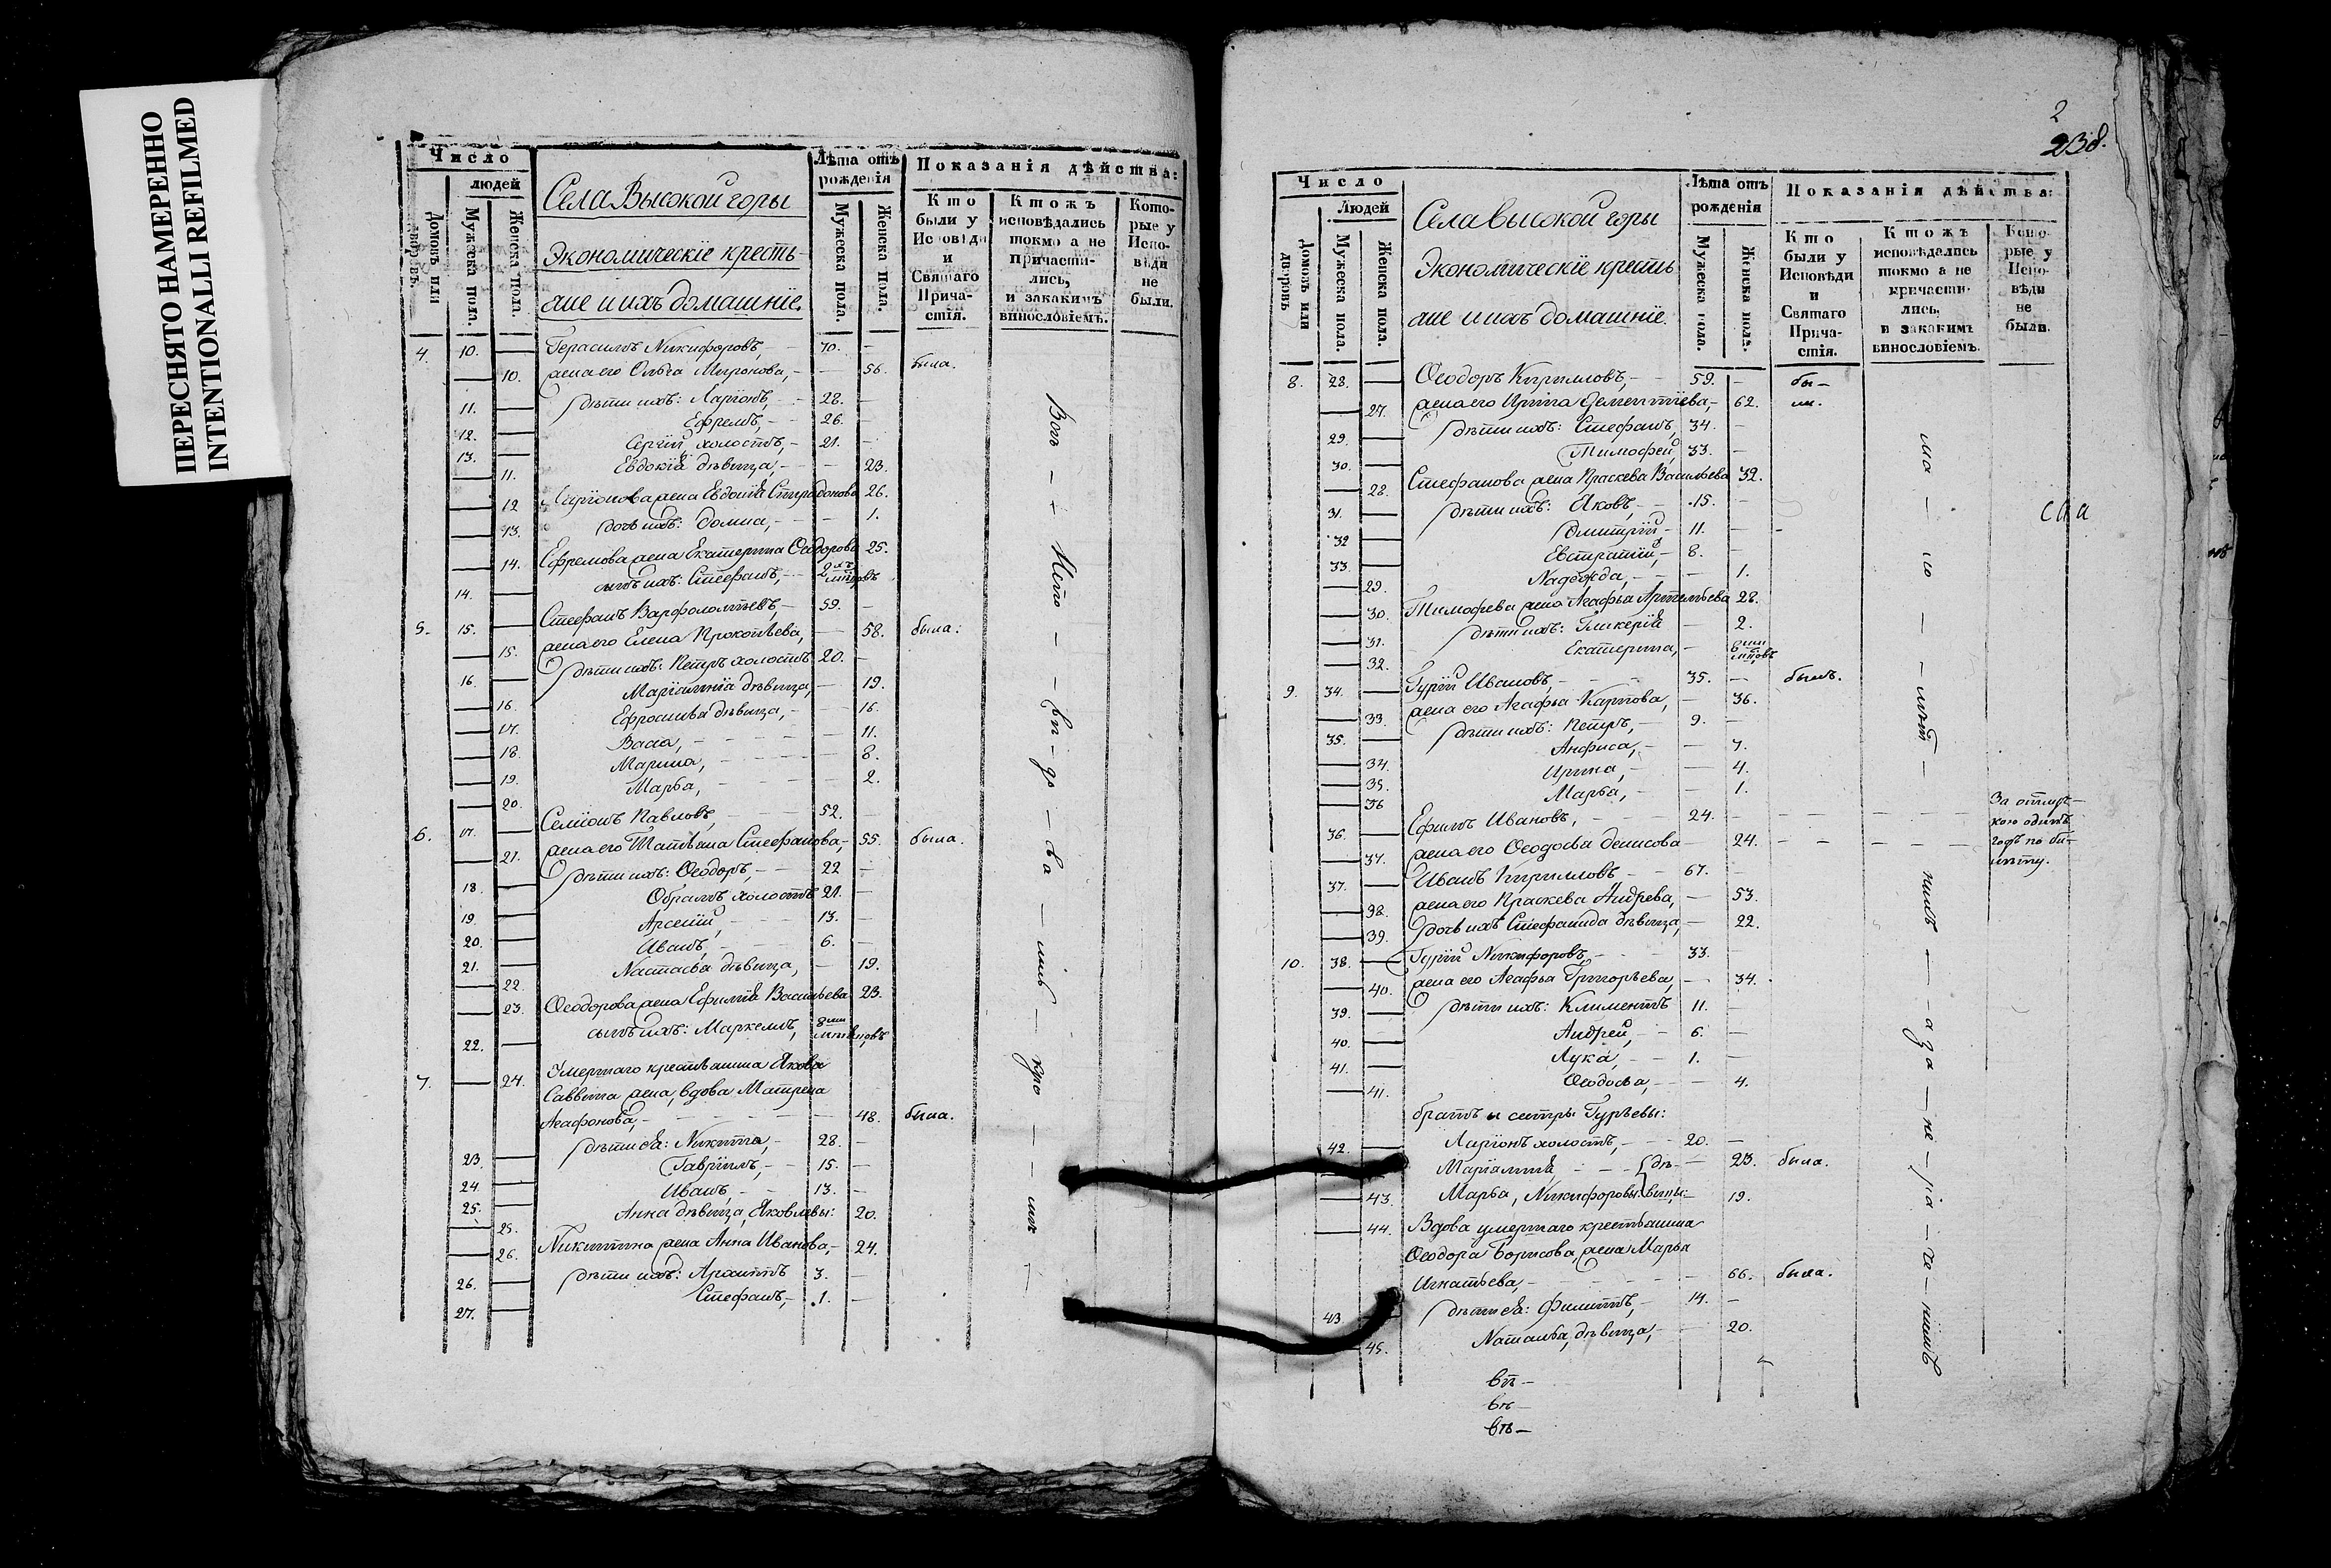 ПЕРЕСНЯТО НАМЕРЕННО
INTENTIONALLI REFILMED
Число
людей
Домовъ или дворовъ.
Мужеска пола.
Женска пола.
Села Высокой горы
Экономическїе кресть-
яне и ихъ домашнїе.
Лѣта отъ рожденїя
Мужеска пола.
Женска пола.
Показанїя дѣйства:
Кто были у Исповѣди и Святаго Прича- стїя.
Ктожъ исповѣдались токмо а не причасти- лись, и закакимъ винословїемъ.
Кото- рые у Испо- вѣди не были.
4. 10. Герасимъ Никифоровъ, 70.
10. жена его Ольга Миронова, 56. была.
11. дѣти ихъ: Ларїонъ, 28.
12. Ефремъ, 26.
13. Сергїй холостъ, 21.
11. Евдокїя дѣвица, 23.
12 Ларїонова жена Евдокїя Спиридонова 26.
13. дочь ихъ: Домна, 1.
14. Ефремова жена Екатерина Ѳеодорова 25.
14. сынъ ихъ: Стефанъ, 2хъ
5. 15. Стефанъ Варфоломѣевъ, 59.
15. жена его Елена Прокопьева, 58. была:
16. дѣти ихъ: Петръ холостъ 20.
16. Марїамнїа дѣвица, 19.
17. Ефросинья дѣвица, 16.
18. Васса, 11.
19. Марина, 8.
20. Марѳа, 2.
6. 17. Семїонъ Павловъ, 52.
21. жена его Татьяна Стефанова, 55. была.
18. дѣти ихъ: Ѳеодоръ, 22
19. Обрамъ холостъ 21.
20. Арсенїй, 13.
21. Иванъ, 6.
22. Настасья дѣвица, 19.
23. Ѳеодорова жена Ефимїя Васильева 23.
22. сынъ ихъ: Маркеллъ, 8ми
7. 24. Умершаго крестьянина Якова
Саввина жена, вдова Матрена
Агафонова, 48. была.
23. дѣти ея: Никита, 28.
24. Гаврїилъ, 15.
25. Иванъ, 13.
25. Анна дѣвица, Яковлевы: 20.
26. Никитина жена Анна Иванова, 24.
26. дѣти ихъ: Архиппъ 3.
27. Стефанъ, 1.
2
238.
Число
Людей
Домовъ или дворовъ
Мужеска пола.
Женска пола.
Села высокой горы
Экономическїе кресть
яне и ихъ домашнїе.
Лѣта отъ рожденїя
Мужеска пола.
Женска пола.
Показанїя дѣйства:
Кто были у Исповѣди и Святаго Прича- стїя.
Ктожъ исповѣдались токмо а не причасти- лись, и закакимъ винословїемъ.
Кото- рые у Испо- вѣди не были.
8. 28. Ѳеодоръ Кириловъ, 59. бы-
27. жена его Ирина Дементїева, 62. ли.
29. дѣти ихъ: Стефанъ, 34.
30. Тимофей, 33.
28. Стефанова жена Праскева Васильева 32.
31. дѣти ихъ: Яковъ, 15.
32 Дмитрїй 11.
33. Евстратїй, 8.
29. Надежда, 1.
30. Тимофеева жена Агафья Артемьева 28.
31. дѣти ихъ: Гликерїя 2.
32. Екатерина, 6ти
9. 34. Гурїй Ивановъ, 35. былъ.
33. жена его Агафья Карпова, 36.
35. дѣти ихъ: Петръ, 9.
34. Анфиса, 7.
35. Ирина, 4.
36 Марѳа, 1.
36. Ефимъ Ивановъ, 24.
37. жена его Ѳеодосья Денисова 24.
За отлуч-
кою одинъ
годъ по би-
лету.
37. Иванъ Кириловъ 67.
38. жена его Праскева Андрева, 53.
39. дочь ихъ Стефанида дѣвица, 22.
10. 38. Гурїй Никифоровъ, 33.
40. жена его Агафья Григорьева, 34.
39. дѣти ихъ: Климентъ 11.
40. Андрей, 6.
41. Лука, 1.
41. Ѳеодосья, 4.
братъ и сестры Гурьевы:
42. Ларїонъ холостъ, 20.
Марїамнїя, дѣ- 23. была.
43. Марѳа, Никифоровы: вицы: 19.
44. Вдова умершаго крестьянина
Ѳеодора Борисова, жена Марья
Игнатьева, 66. была.
43 дѣти ея: Филиппъ, 14.
45. Наталья, дѣвица, 20.